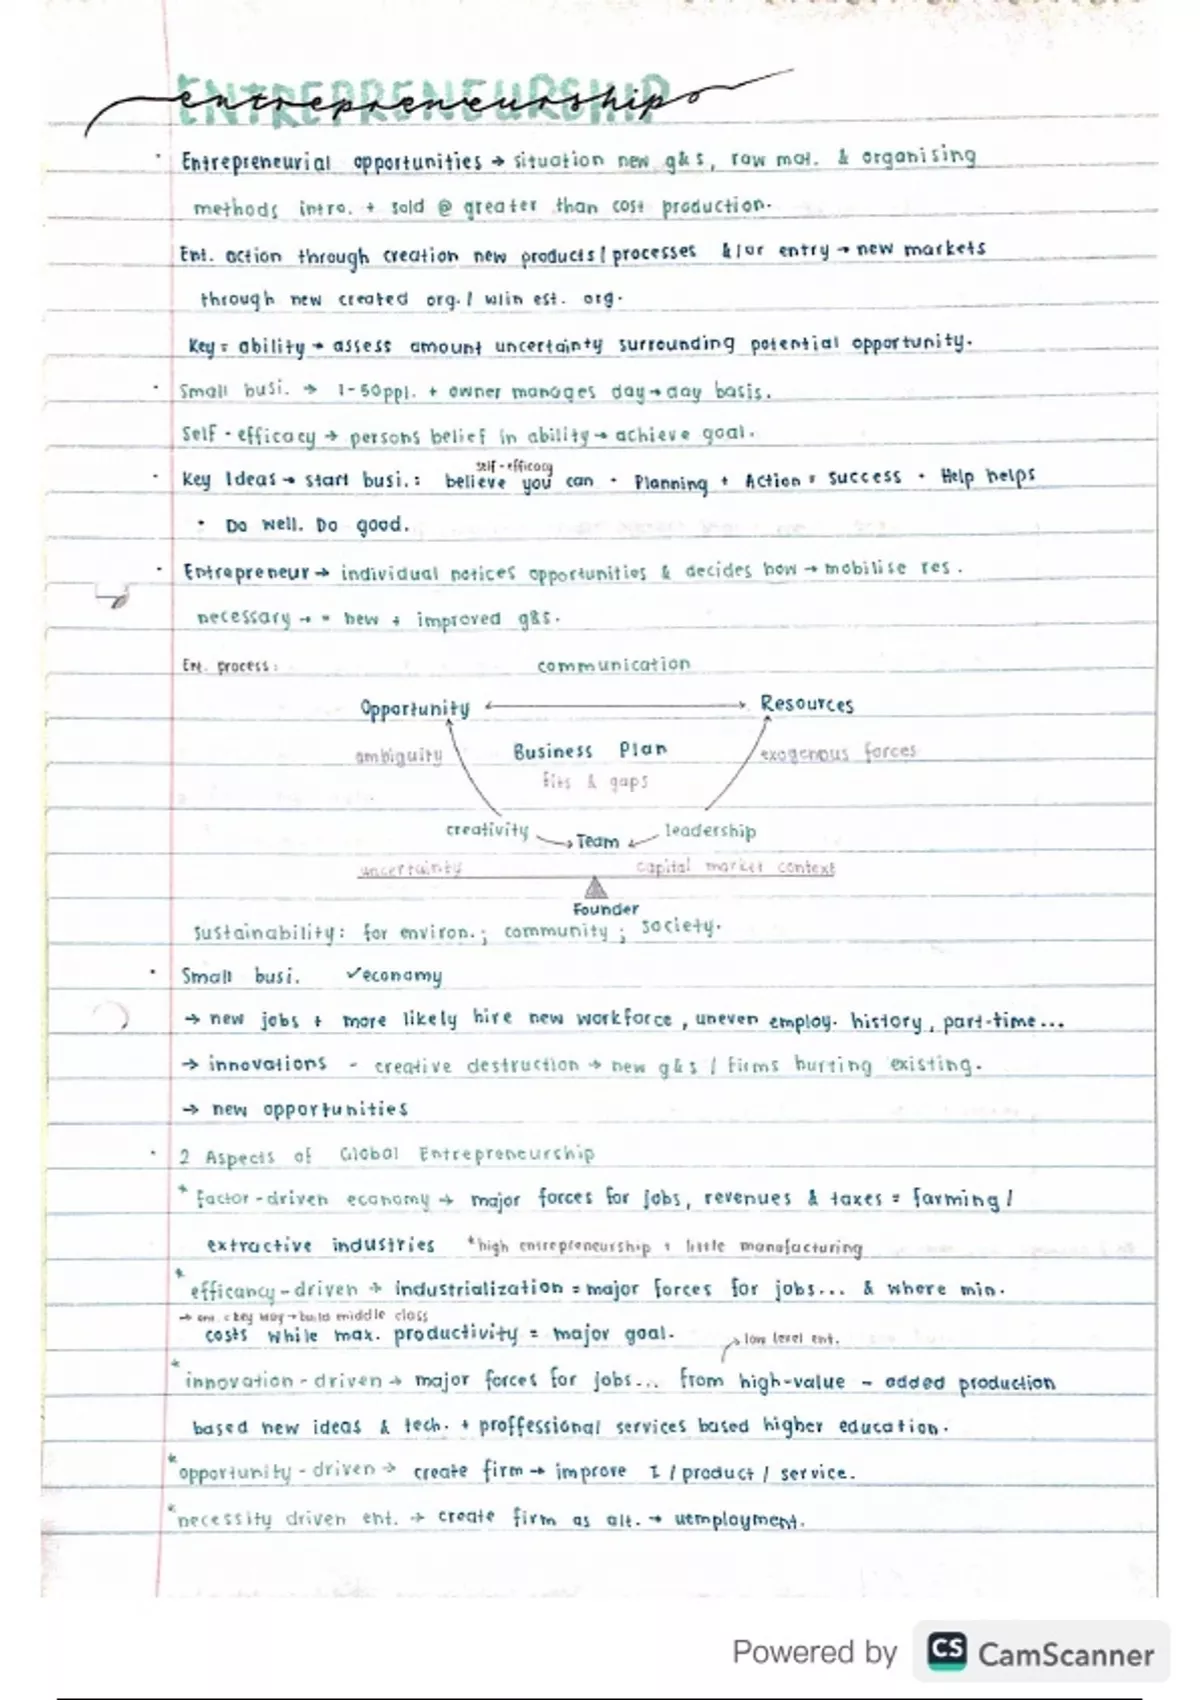 ENTREPRENEURSHIP
entrepreneurship
· Entrepreneurial opportunities → situation new g&s, raw mat. & organising
methods intro. + sold @ greater than cost production.
Ent. action through creation new products / processes &/or entry → new markets
through new created org. / w/in est. org.
Key = ability → assess amount uncertainty surrounding potential opportunity.
· Small busi. → 1-50ppl. + owner manages day → day basis.
Self-efficacy → persons belief in ability → achieve goal.
self-efficacy
· Key Ideas → start busi.: believe you can · Planning + Action = success · Help helps
· Do well. Do good.
· Entrepreneur → individual notices opportunities & decides how → mobilise res.
necessary → = new + improved g&s.
Ent. process: communication
Opportunity ↔ Resources
ambiguity Business Plan exogenous forces
fits & gaps
creativity → Team ← leadership
uncertainty capital market context
Founder
Sustainability: for environ.; community; society.
· Small busi. ✓economy
→ new jobs + more likely hire new workforce, uneven employ. history, part-time...
→ innovations - creative destruction → new g&s / firms hurting existing.
→ new opportunities
· 2 Aspects of Global Entrepreneurship
* factor-driven economy → major forces for jobs, revenues & taxes = farming /
extractive industries *high entrepreneurship + little manafacturing
* efficancy-driven → industrialization = major forces for jobs... & where min.
→ ent. = key way → build middle class
costs while max. productivity = major goal.
→ low level ent.
* innovation-driven → major forces for jobs... from high-value - added production
based new ideas & tech. + proffessional services based higher education.
* opportunity-driven → create firm → improve I / product / service.
* necessity driven ent. → create firm as alt. → uemployment.
Powered by CS CamScanner